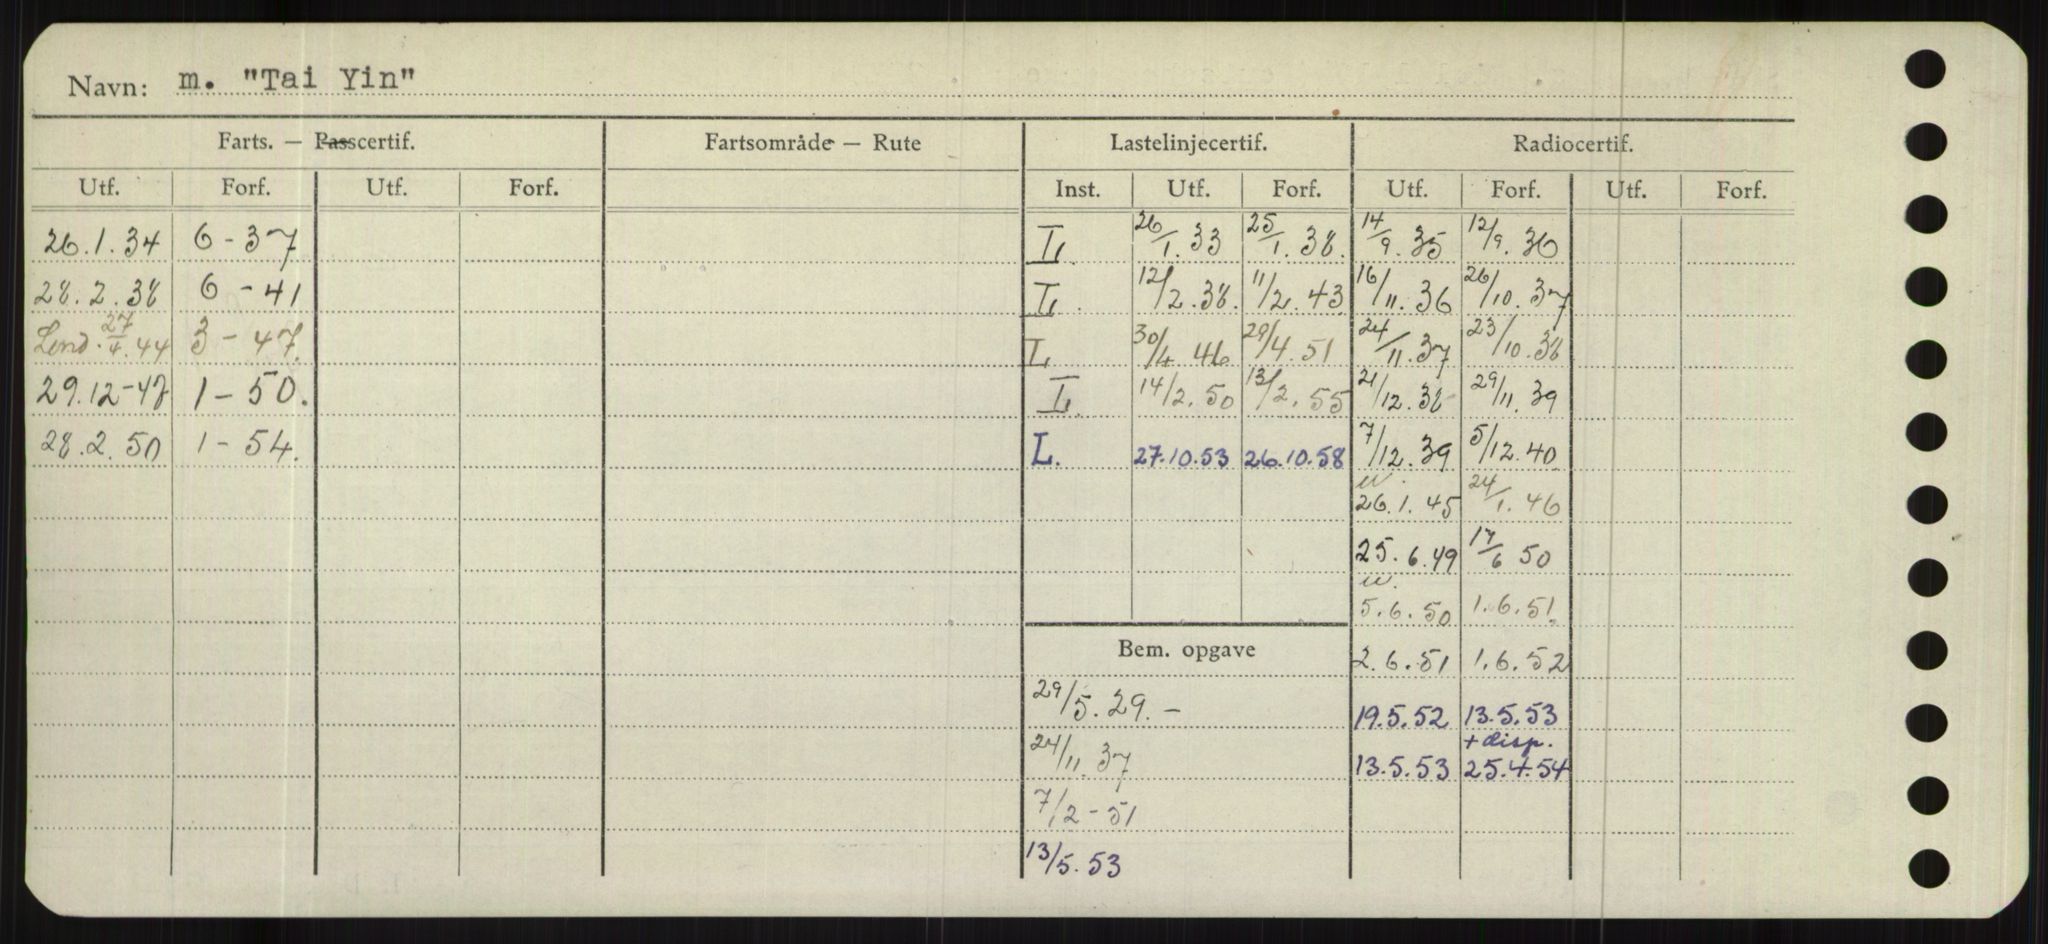 Navn: m. "Tai Yin"
Farts. — Passcertif. Fartsområde — Rute Lastelinjecertif. Radiocertif.
Utf. Forf. Utf. Forf. Inst. Utf. Forf. Utf. Forf. Utf. Forf.
26.1.34 6-37 L. 26/1.33 25/1.38. 14/9.35 12/9.36
28.2.38 6-41 L. 12/2.38. 11/2.43 16/11.36 26/10.37
Lond. 27/4.44 3-47. L 30/4.46 29/4.51 24/11.37 23/10.38
29.12-47 1-50. L. 14/2.50 13/2.55 21/12.38 29/11.39
28.2.50 1-54. L. 27.10.53 26.10.58 7/12.39 5/12.40
26.1.45 24/1.46
25.6.49 17/6 50
5.6.50 1.6.51.
Bem. opgave 2.6.51 1.6.52
29/5.29.- 19.5.52 13.5.53
+ disp.
24/11.37 13.5.53 25.4.54
7/2-51
13/5.53